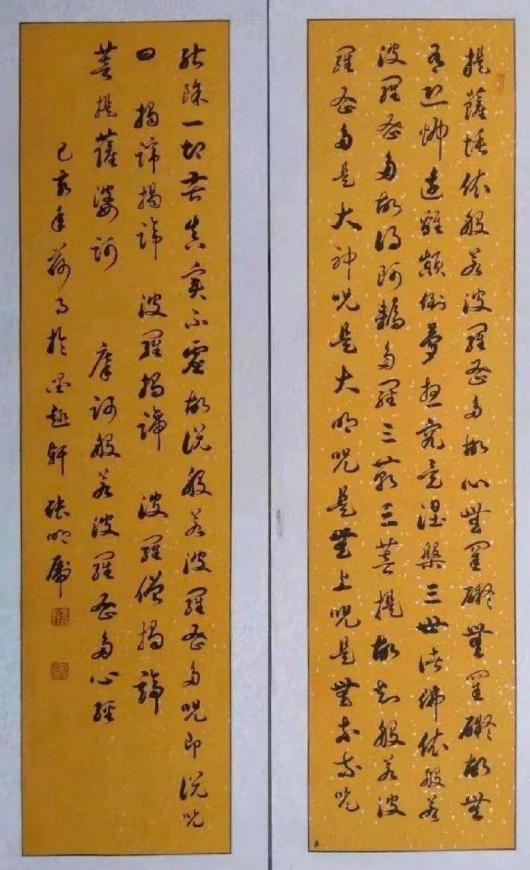 提薩埵依般若波羅蜜多故心無罣礙無罣礙故無
有恐怖遠離顛倒夢想究竟涅槃三世諸佛依般若
波羅蜜多故得阿耨多羅三藐三菩提故知般若波
羅蜜多是大神呪是大明呪是無上呪是無等等呪
能除一切苦真實不虛故説般若波羅蜜多呪即説呪
曰 揭諦揭諦 波羅揭諦 波羅僧揭諦
菩提薩婆訶 摩訶般若波羅蜜多心經
己亥年荷月於墨趣軒張明